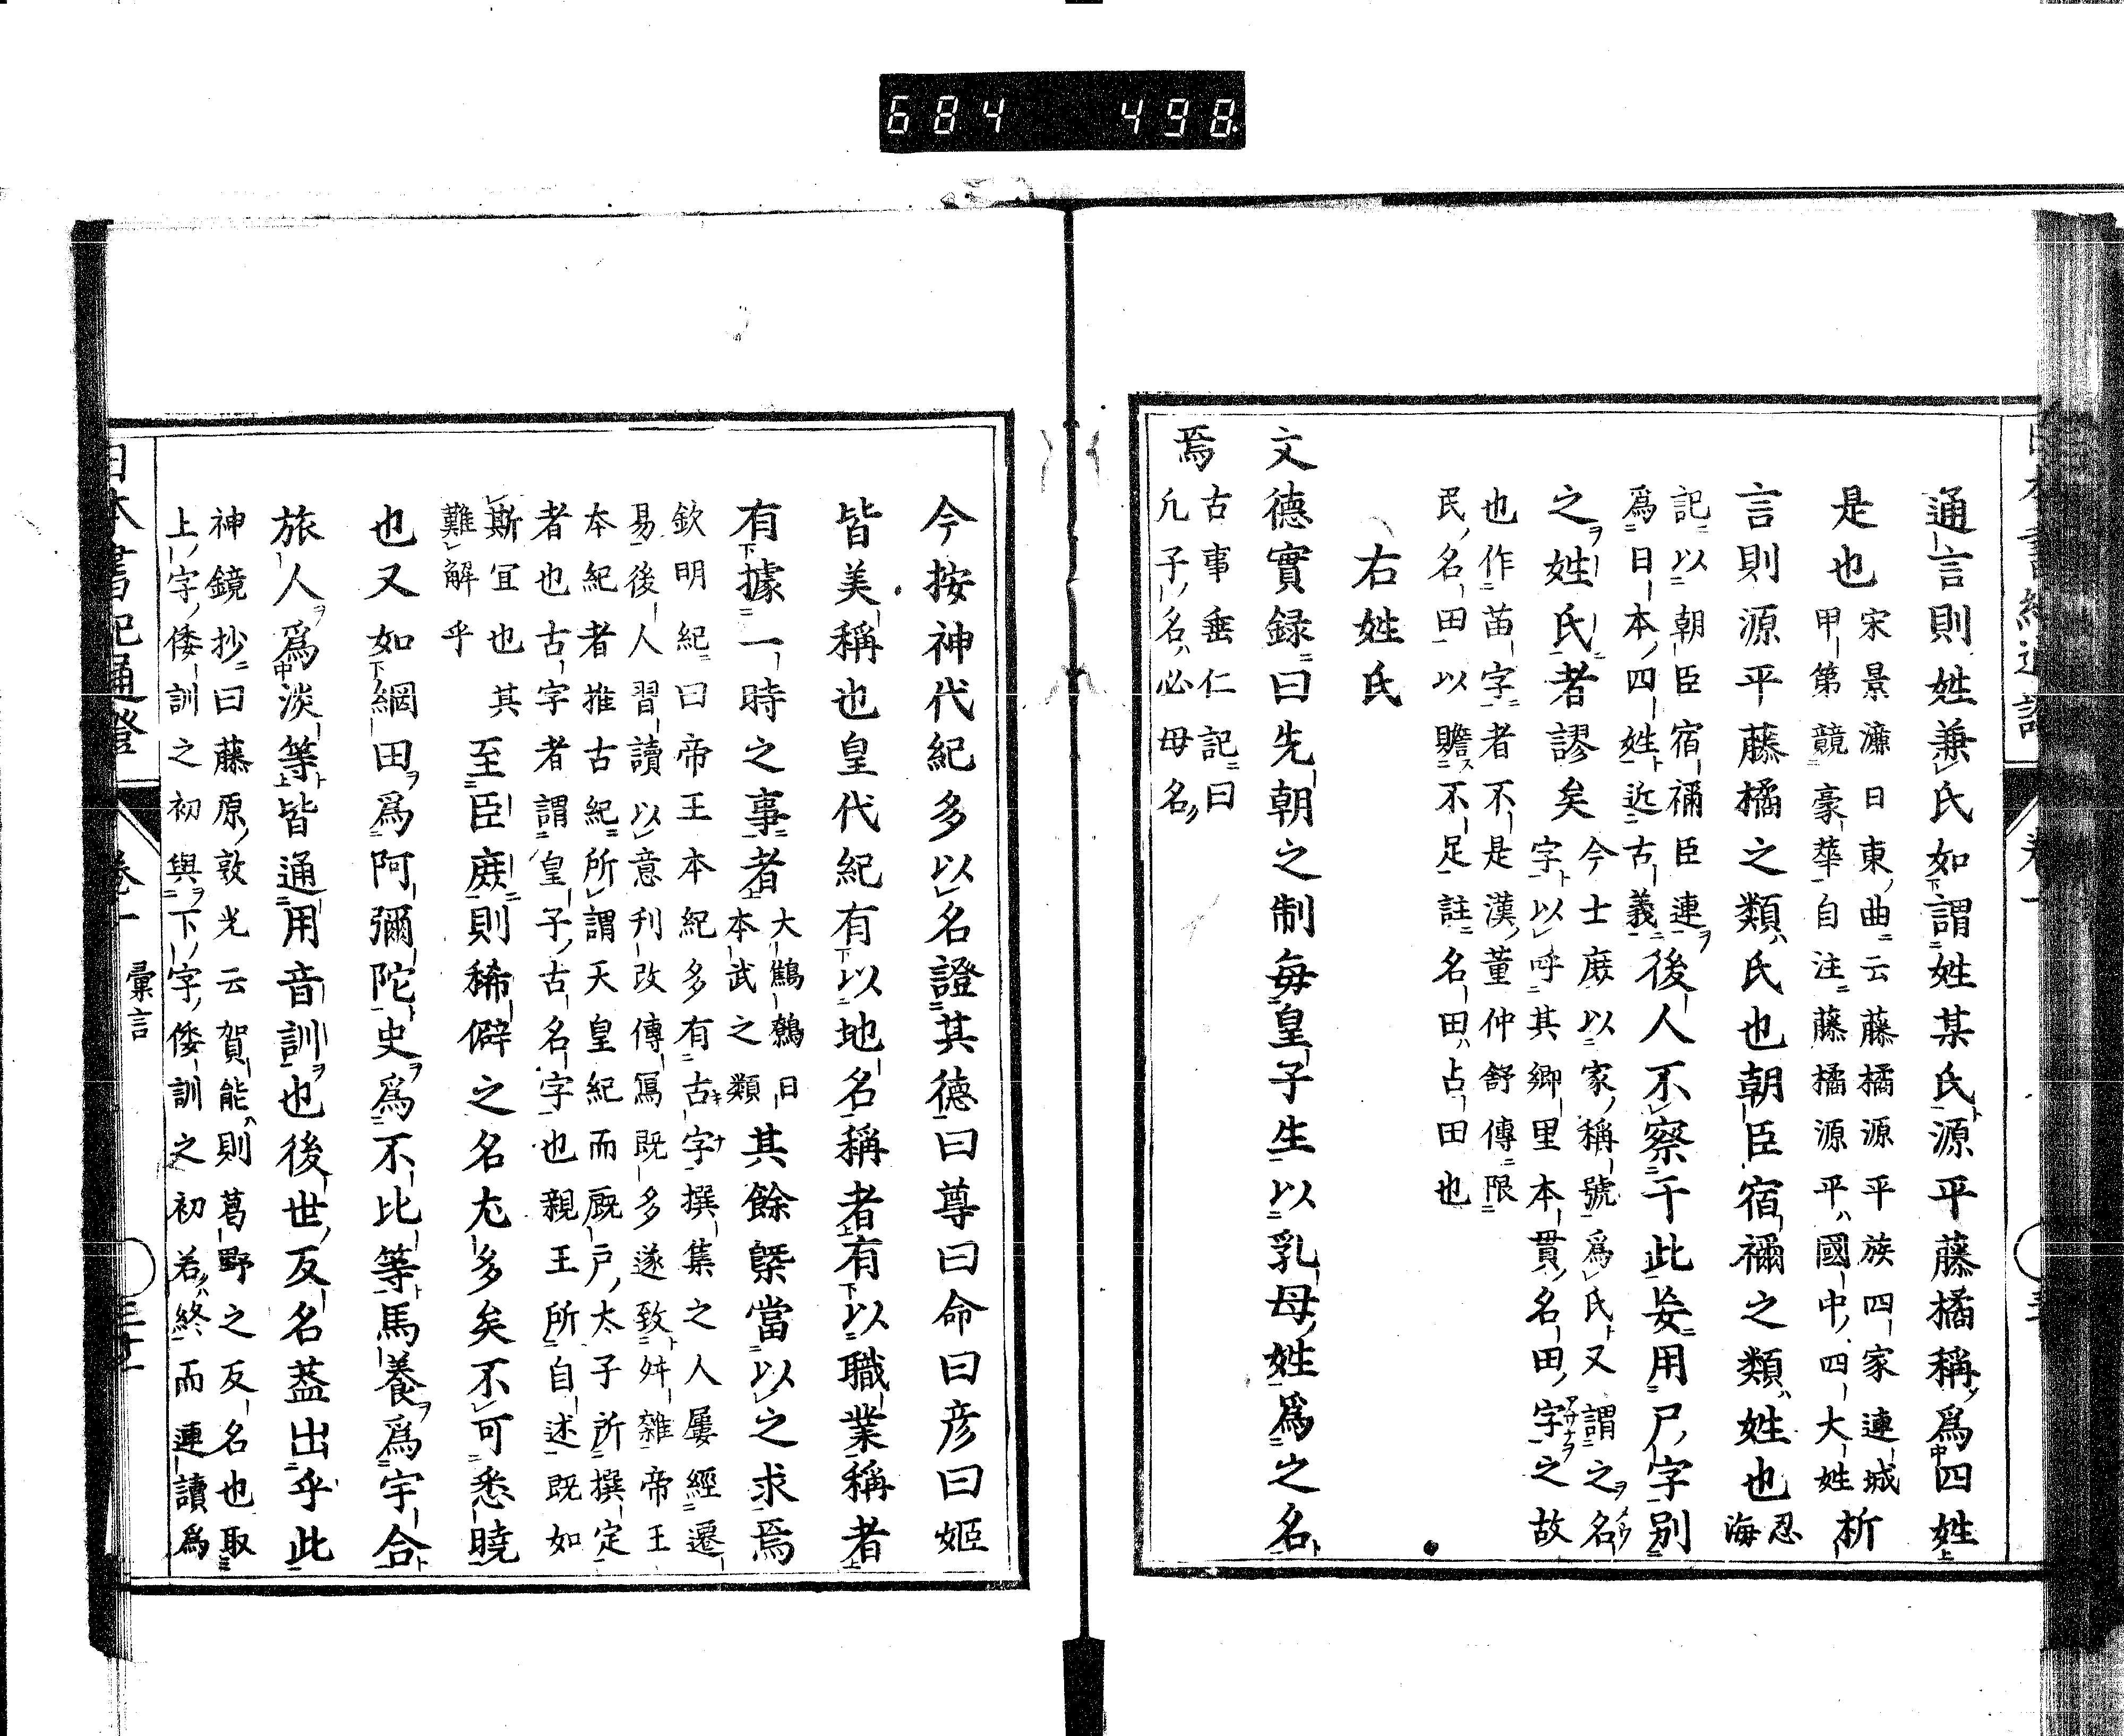 684 498
通言則姓兼氏如謂姓某氏源平藤橘稱爲四姓
是也
宋景濂日東曲云藤橘源平族四家連城
甲第競豪華自注藤橘源平國中四大姓
析
言則源平藤橘之類氏也朝臣宿禰之類姓也
忍
海
記以朝臣宿禰臣連
爲日本四姓近古義
後人不察于此妄用尸字別
之姓氏者謬矣
今士庶以家稱號爲氏又謂之名
字以呼其鄉里本貫名田字之故
也作苗字者不是漢董仲舒傳限
民名田以贍不足註名田占田也
右姓氏
文德實録曰先朝之制每皇子生以乳母姓爲之名
焉
古事垂仁記曰
凢子名必母名
今按神代紀多以名證其德曰尊曰命曰彦曰姬
皆美稱也皇代紀有以地名稱者有以職業稱者
有據一時之事者
大鷦鷯日
本武之類
其餘槩當以之求焉
欽明紀曰帝王本紀多有古字撰集之人屢經遷
易後人習讀以意刋改傳寫既多遂致舛雜帝王
本紀者推古紀所謂天皇紀而厩戶太子所撰定
者也古字者謂皇子古名字也親王所自述既如
斯宜也其
難解乎
至臣庶則稀僻之名尤多矣不可悉曉
也又如綱田爲阿彌陀史爲不比等馬養爲宇合
旅人爲淡等皆通用音訓也後世反名葢出乎此
神鏡抄曰藤原敦光云賀能則葛野之反名也取
上字倭訓之初與下字倭訓之初若終而連讀爲
日本書紀通證
卷一
彙言